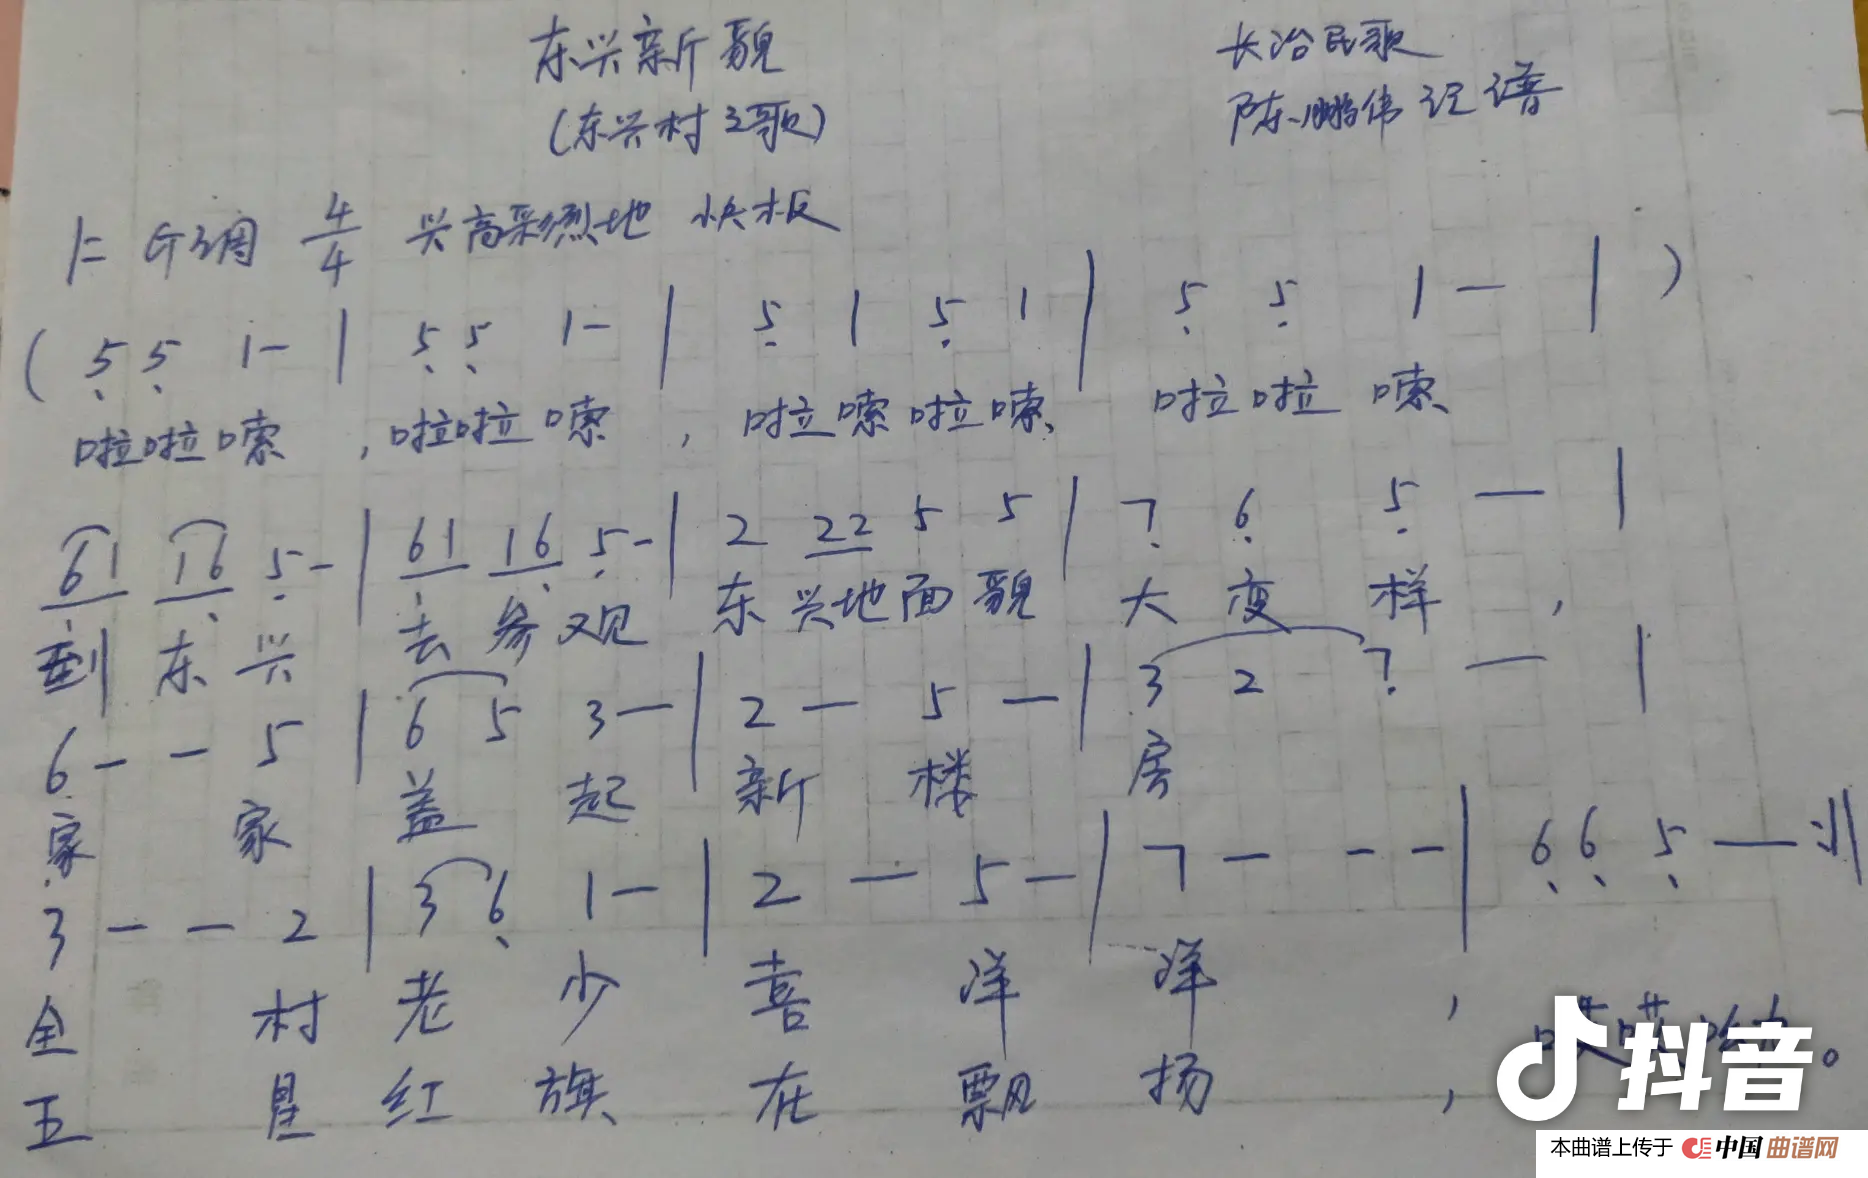 东兴新貌 长治民歌
(东兴村之歌) 陈鹏伟记谱
1=G调 4/4 兴高采烈地 快板
( 5̣ 5̣ 1 - | 5̣ 5̣ 1 - | 5̣ 1 5̣ 1 | 5̣ 5̣ 1 — | )
啦啦嗦,啦啦嗦,啦嗦啦嗦、啦啦嗦、
6̣1 16̣ 5̣ - | 6̣1 16̣ 5̣ - | 2 22 5 5 | 7̣ 6̣ 5̣ — |
到东兴 去参观 东兴地面貌 大变样,
6 - - 5 | 6 5 3 — | 2 — 5 — | 3 2 7̣ — |
家 家 盖 起 新 楼 房
3 — — 2 | 3 6̣ 1 — | 2 — 5 — | 7 — — — | 6̣ 6̣ 5̣ — :||
全 村 老 少 喜 洋 洋 ,
五 星 红 旗 在 飘 扬 ,
抖音
本曲谱上传于 中国曲谱网